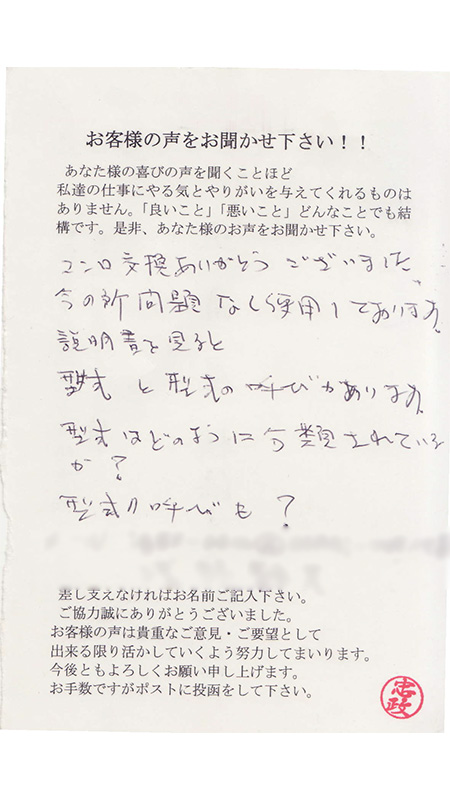 お客様の声をお聞かせ下さい！！
あなた様の喜びの声を聞くことほど
私達の仕事にやる気とやりがいを与えてくれるものは
ありません。「良いこと」「悪いこと」どんなことでも結
構です。是非、あなた様のお声をお聞かせ下さい。
コンロ交換ありがとうございました。
今の所問題なしく使用しております。
説明書を見ると
型式と型式の呼びがあります。
型式はどのように分類されている
か？
型式の呼びも？
差し支えなければお名前ご記入下さい。
ご協力誠にありがとうございました。
お客様の声は貴重なご意見・ご要望として
出来る限り活かしていくよう努力してまいります。
今後ともよろしくお願い申し上げます。
お手数ですがポストに投函をして下さい。
忠政